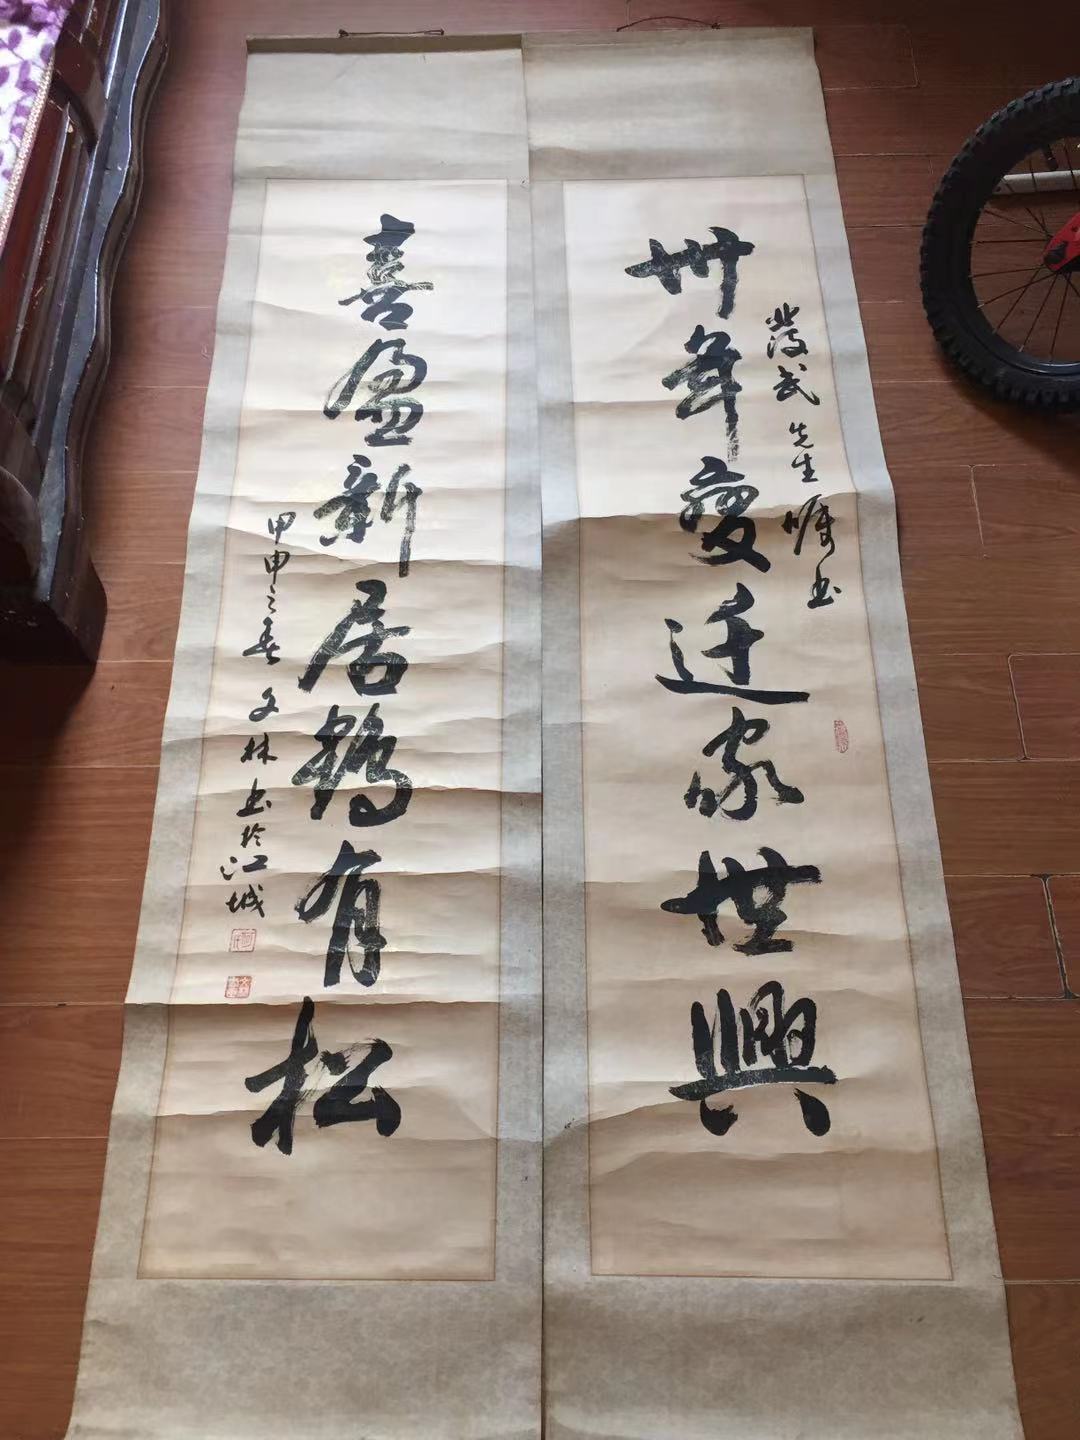 發武先生嘱书
卅年变迁家世興
喜盈新居鹤有松
甲申之春 文林书於江城